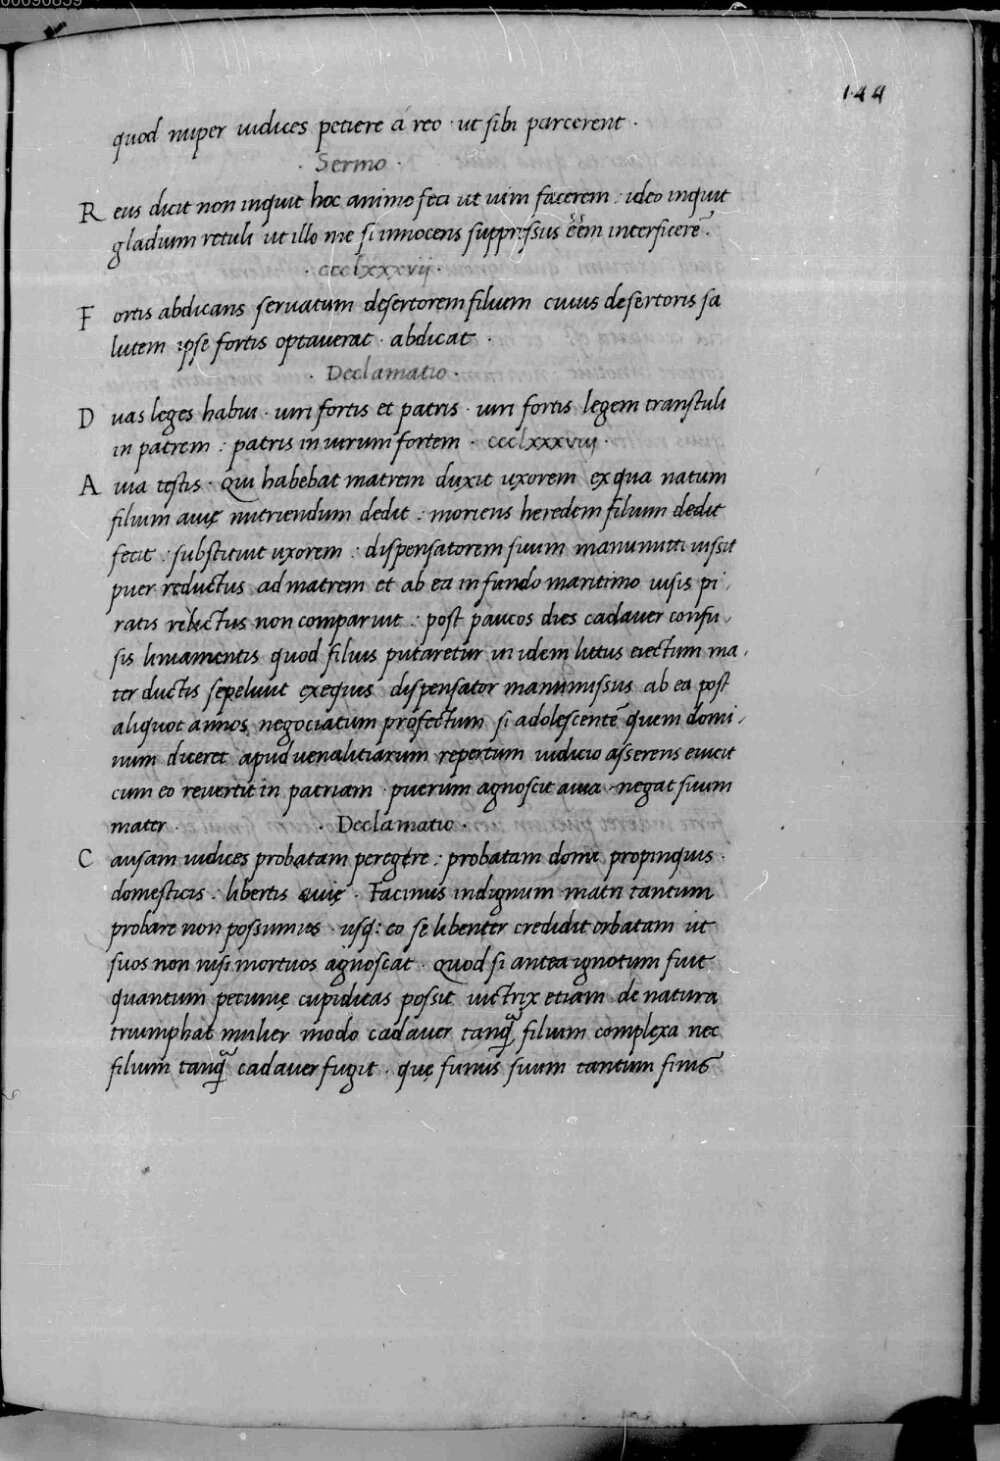 144
quod nuper iudices petiere á reo · ut sibi parcerent ·
· Sermo ·
R eus dicit non inquit hoc animo feci ut uim facerem : ideo inquit
gladium retuli ut illo me si innocens suppressus eēm interficerē ·
· ccclxxxvij ·
F ortis abdicans seruatum desertorem filium cuius desertoris sa
lutem ipse fortis optauerat · abdicat ·
· Declamatio ·
D uas leges habui · uiri fortis et patris · uiri fortis legem transtuli
in patrem : patris in uirum fortem · ccclxxxviij ·
A uia testis · Qui habebat matrem duxit uxorem ex qua natum
filium auię nutriendum dedit : moriens heredem filium dedit
fecit : substituit uxorem : dispensatorem suum manumitti iussit
puer reductus ad matrem et ab ea in fundo maritimo uisis pi
ratis relictus non comparuit : post paucos dies cadauer confu
sis liniamentis quod filius putaretur in idem litus eiectum ma
ter ductis sepeliuit exequiis dispensator manumissus ab ea post
aliquot annos negociatum profectum si adolescentē quem domi
num diceret apud uenalitiarium repertum iudicio asserens euicit
cum eo reuertit in patriam · puerum agnoscit auia · negat suum
mater · · Declamatio ·
C ausam iudices probatam peregre : probatam domi propinquis ·
domesticis : libertis auię · Facinus indignum matri tantum
probare non possumus · usq: eo se libenter credidit orbatam ut
suos non nisi mortuos agnoscat · Quod si antea ignotum fuit
quantum pecunię cupiditas possit uictrix etiam de natura
triumphat mulier modo cadauer tanq̃ filium complexa nec
filium tanq̃ cadauer fugit · quę funus suum tantum finis